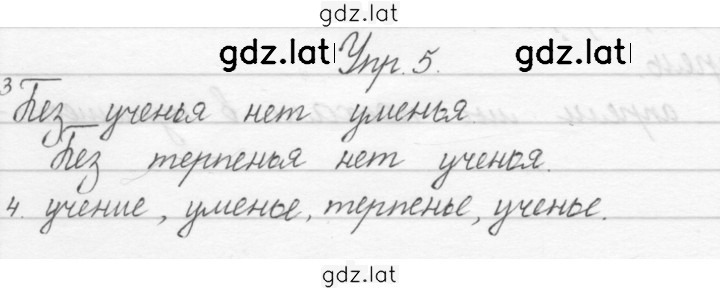 gdz.lat
gdz.lat Упр. 5. gdz.lat
3 Без ученья нет уменья
Без терпенья нет ученья.
4. учение, уменье, терпенье, ученье.
gdz.lat